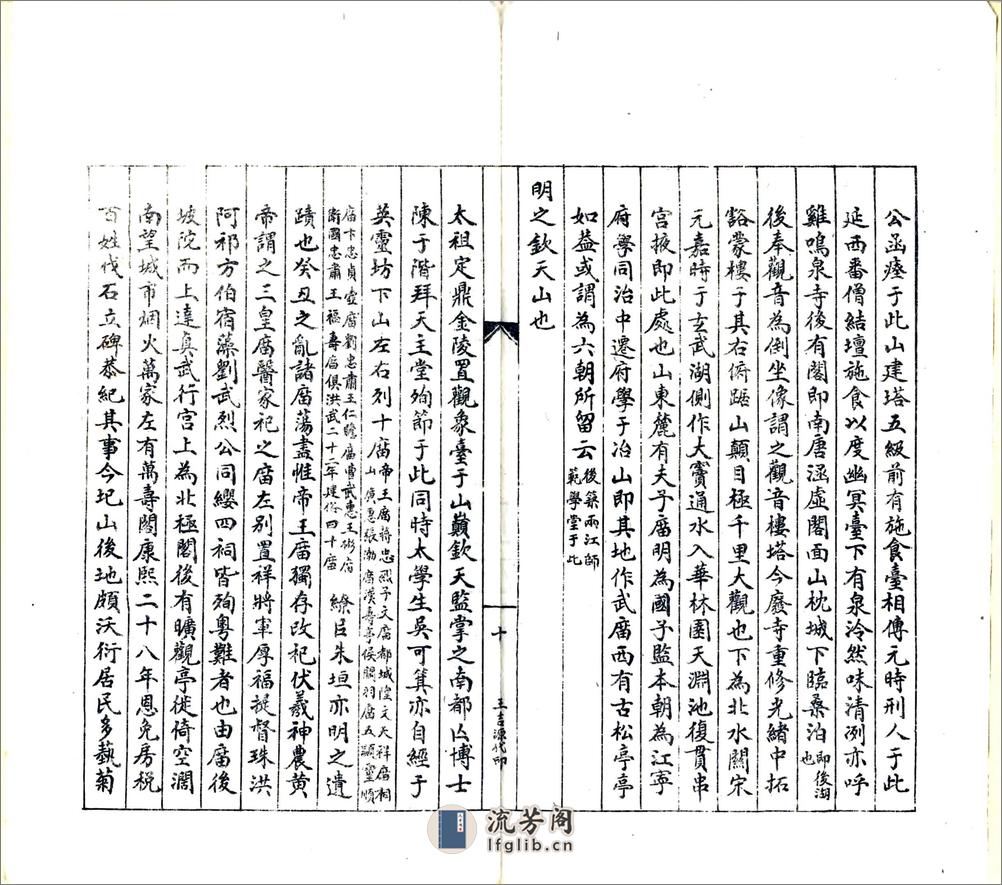 公函瘞于此山建塔五級前有施食臺相傳元時刑人于此
延西番僧結壇施食以度幽冥臺下有泉泠然味清冽亦呼
雞鳴泉寺後有閣即南唐涵虛閣面山枕城下臨桑泊即後湖也
後奉觀音為倒坐像謂之觀音樓塔今廢寺重修光緒中拓
豁蒙樓于其右俯踞山顛目極千里大觀也下為北水關宋
元嘉時于玄武湖側作大竇通水入華林園天淵池復貫串
宫掖即此處也山東麓有夫子廟明為國子監本朝為江寧
府學同治中遷府學于冶山即其地作武廟西有古松亭亭
如葢或謂為六朝所留云後築兩江師範學堂于此
明之欽天山也
太祖定鼎金陵置觀象臺于山巔欽天監掌之南都亾博士
陳于階拜天主堂殉節于此同時太學生吳可箕亦自經于
英靈坊下山左右列十廟帝王廟蔣忠烈子文廟都城隍文天祥廟祠山廣惠張渤廟漢壽亭侯關羽廟五顯靈順
廟卞忠貞壼廟劉忠肅王仁贍廟曹武惠王彬廟衛國忠肅王福壽廟俱洪武二十二年建俗四十廟 繚呂朱垣亦明之遺
蹟也癸丑之亂諸廟蕩盡惟帝王廟獨存改祀伏羲神農黄
帝謂之三皇廟醫家祀之廟左别置祥將軍厚福提督珠洪
阿祁方伯宿藻劉武烈公同纓四祠皆殉粤難者也由廟後
坡院而上達真武行宫上為北極閣後有曠觀亭徙倚空濶
南望城市烟火萬家左有萬壽閣康熙二十八年恩免房税
百姓伐石立碑恭紀其事今圮山後地頗沃衍居民多藝菊
十
王吉源代印
流芳阁
lfglib.cn